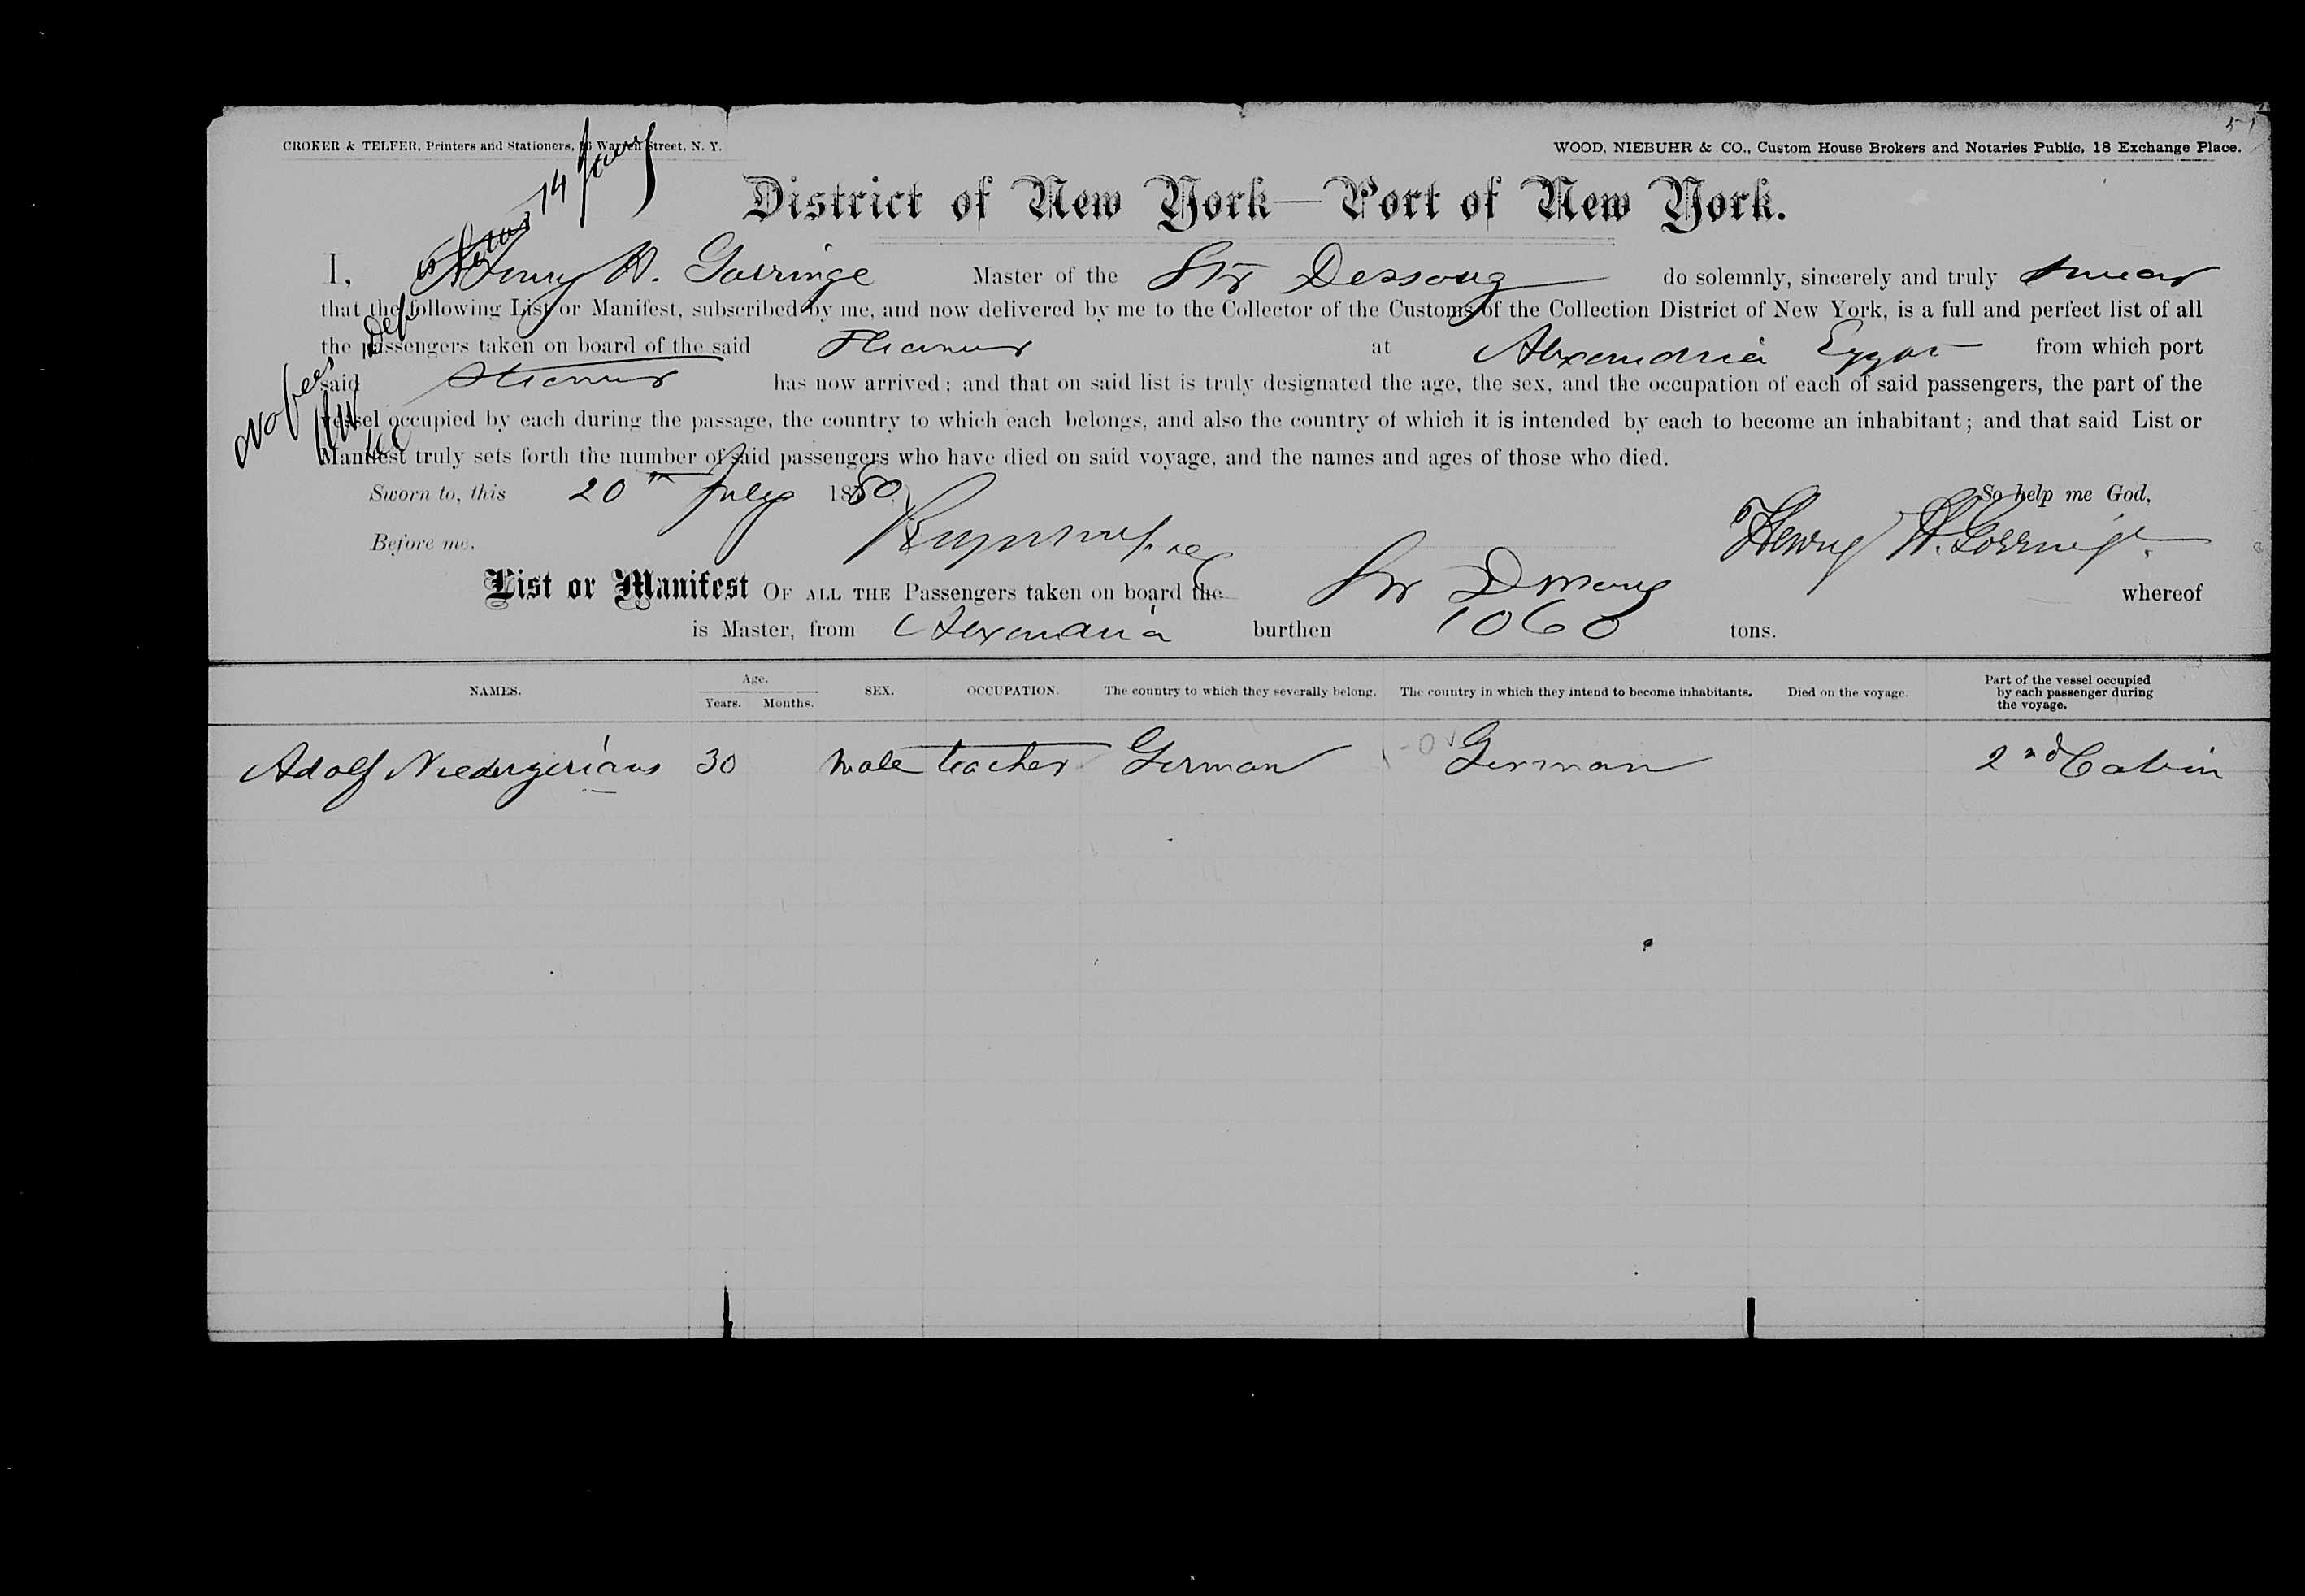 CROKER & TELFER, Printers and Stationers, Warren Street, N. Y.
WOOD, NIEBUHR & CO., Custom House Brokers and Notaries Public, 18 Exchange Place.
District of New York—Port of New York.
I, Henry H. Gorringe Master of the Str Dessoug do solemnly, sincerely and truly swear
that the following List or Manifest, subscribed by me, and now delivered by me to the Collector of the Customs of the Collection District of New York, is a full and perfect list of all
the passengers taken on board of the said Steamer at Alexandria Egypt from which port
said Steamer has now arrived; and that on said list is truly designated the age, the sex, and the occupation of each of said passengers, the part of the
vessel occupied by each during the passage, the country to which each belongs, and also the country of which it is intended by each to become an inhabitant; and that said List or
Manifest truly sets forth the number of said passengers who have died on said voyage, and the names and ages of those who died.
Sworn to, this 20th July 1880 So help me God,
Before me. Henry H. Gorringe
List or Manifest OF ALL THE Passengers taken on board the Str Dessoug whereof
is Master, from Alexandria burthen tons.
NAMES. Age. Years. Months. SEX. OCCUPATION. The country to which they severally belong. The country in which they intend to become inhabitants. Died on the voyage. Part of the vessel occupied by each passenger during the voyage.
Adolf 30 male teacher German German 2nd Cabin